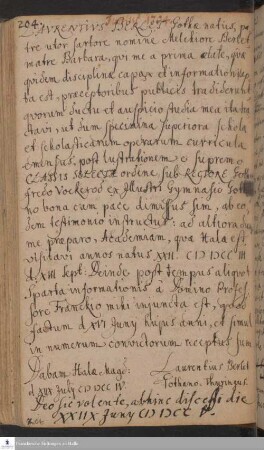 204.
LAVRENTIVS BERLET Gotha natus, pa
tre utor sartore nomine Melchiore Berlet
matre Barbara, qui me a prima ætate, qua
quidem disciplinæ capax et informationis ap
ta est, præceptoribus publicis tradiderunt
quorum ductu et auspicio studia mea ita tra
ctavi, ut dum specimina superiora schola
et scholasticarum operarum curricula
emensus, post lustrationem e supremo
CLASSIS SELECTÆ ordine sub RECTORE Gott
fredo Vockerod ex Illustri Gymnasio Got
no bona cum pace dimissus sim, ab eo
dem testimonio instructus: ad altiora du
me præparo, Academiam, qua Hala est
visitavi annos natus XXII. CIƆ IƆCC III
d. XIII sept. Deinde post tempus aliquot
Sparta informationis a Domino Profes
sore Franckio mihi injuncta est, quod
factum d XVI Juny hujus anni, et simul
in numerum convictorum receptus sum
Dabam Hala Magd:
d XIX July CIƆ IƆCC IV
Laurentius Berlet
Gothano-Thuringus.
Deo sic volente, abhinc discessi die
XXIIX Juny CIƆ IƆCC